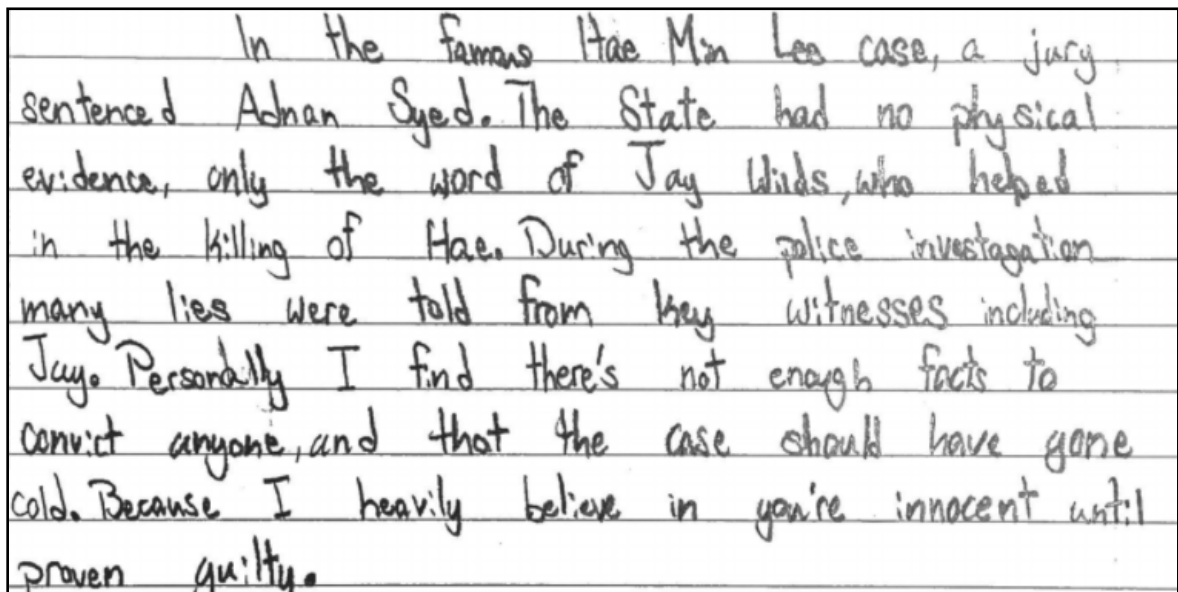 In the famous Hae Min Lee case, a jury
sentenced Adnan Syed. The State had no physical
evidence, only the word of Jay Wilds, who helped
in the killing of Hae. During the police investagation
many lies were told from key witnesses including
Jay. Personally I find there's not enough facts to
convict anyone, and that the case should have gone
cold. Because I heavily believe in you're innocent until
proven guilty.